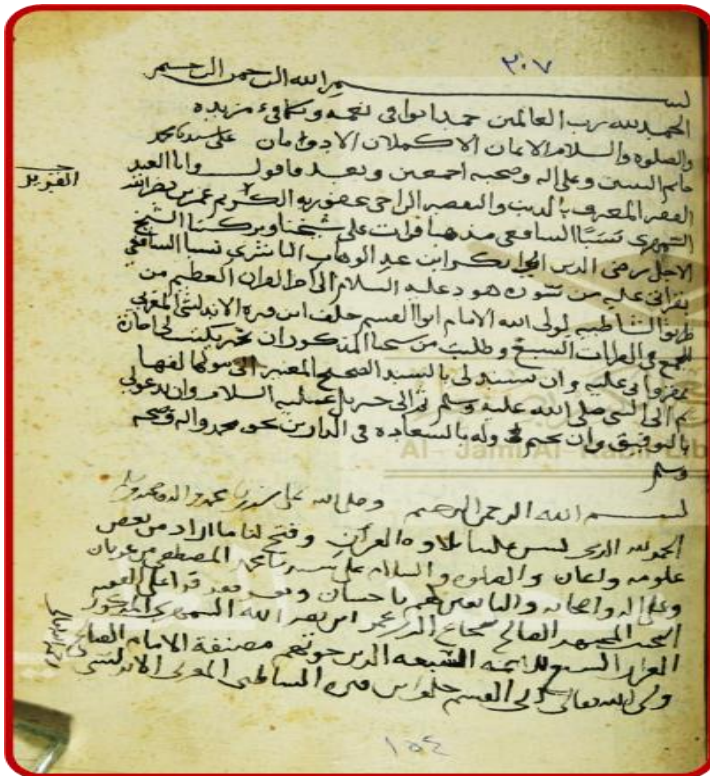 ٣٠٧
بسم الله الرحمن الرحيم
الحمد لله رب العالمين حمدا يوافي نعمه ويكافئ مزيده
والصلوة والسلام الاتمان الاكملان الادومان على سيدنا محمد
خاتم النبيين وعلى اله وصحبه اجمعين وبعد فاقول وانا العبد
العزيز
الفقير المعترف بالذنب والتقصير الراجي عفو ربه الكريم عمر بن نصر الله
نسبا الشافعي مذهبا قرات على شيخنا وبركتنا الشيخ
الاجل رضي الدين ابي بكر ابن عبد الوهاب الناشري نسبا الشافعي
بقراتي عليه من سورة هود عليه السلام الى اخر القران العظيم من
طريق الشاطبيه لولي الله الامام ابوا القسم خلف ابن فيره الاندلسي المغربي
للجمع في القرات السبع وطلبت من شيخنا المذكور ان يكتب لي اجازة
بمقرواتي عليه وان يسند لي بالسند الصحيح المعتبر الى مولفها
ثم الى النبي صلى الله عليه وسلم ثم الى جبريل عليه السلام وان يدعو لي
بالتوفيق وان يختم لي وله بالسعاده في الدارين بحق محمد واله وصحبه
وسلم
Al - Jami Al - Kabir Lib
بسم الله الرحمن الرحيم وصلى الله على سيدنا محمد واله وصحبه وسلم
الحمد لله الذي يسر علينا تلاوة القران وفتح لنا ما اراد من بعض
علومه ومعان والصلوه والسلام على سيدنا محمد المصطفى من عدنان
وعلى اله واصحابه والتابعين لهم باحسان وبعد فقد قرا علي الفقيه
المجتهد الصالح شجاع الدين عمر ابن نصر الله المذكور
القران السبع للائمه السبعه الذين مصنفه الامام الصالح
ولي الله تعالى ابي القسم خلف ابن فيره الشاطبي المغربي الاندلسي
١٥٤